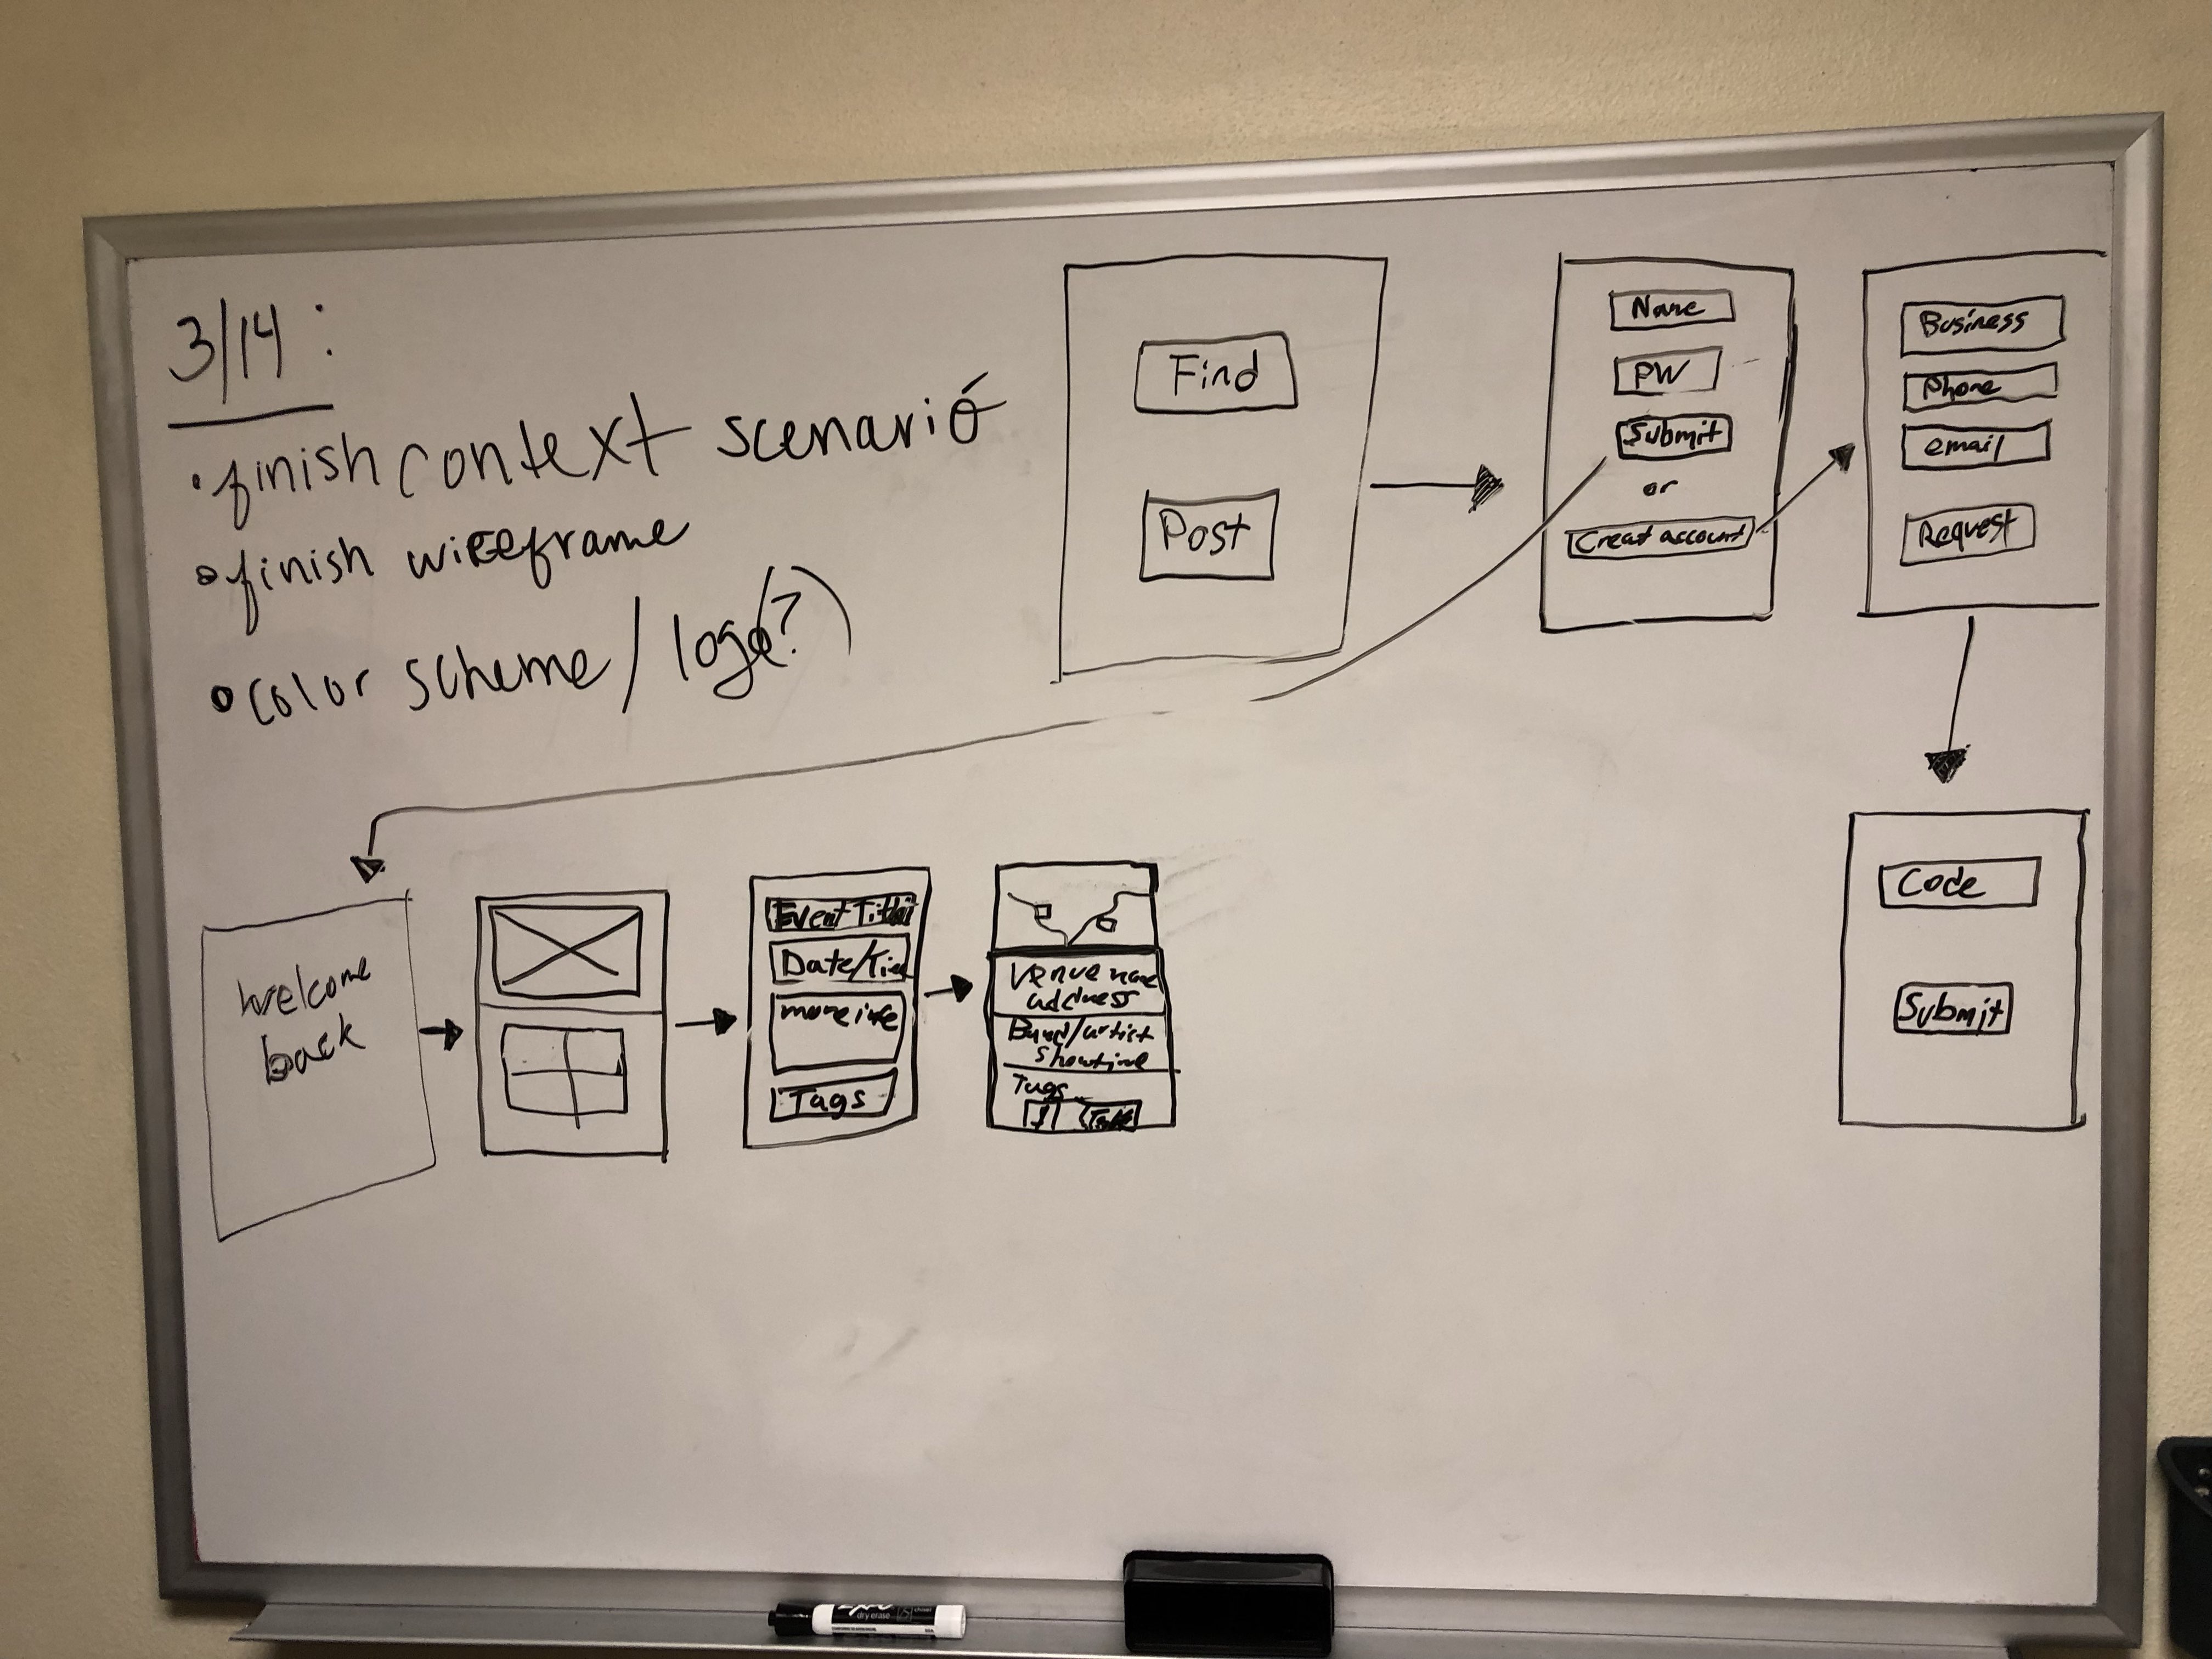 3/14:
• finish context scenario
• finish wireframe
• color scheme / logo(?)
Find
Post
Name
PW
Submit
or
Creat account
Business
Phone
email
Request
Code
Submit
welcome
back
Event Title
Date/Time
more info
Tags
Venue name
address
Band/artist
Showtime
Tags
dry erase